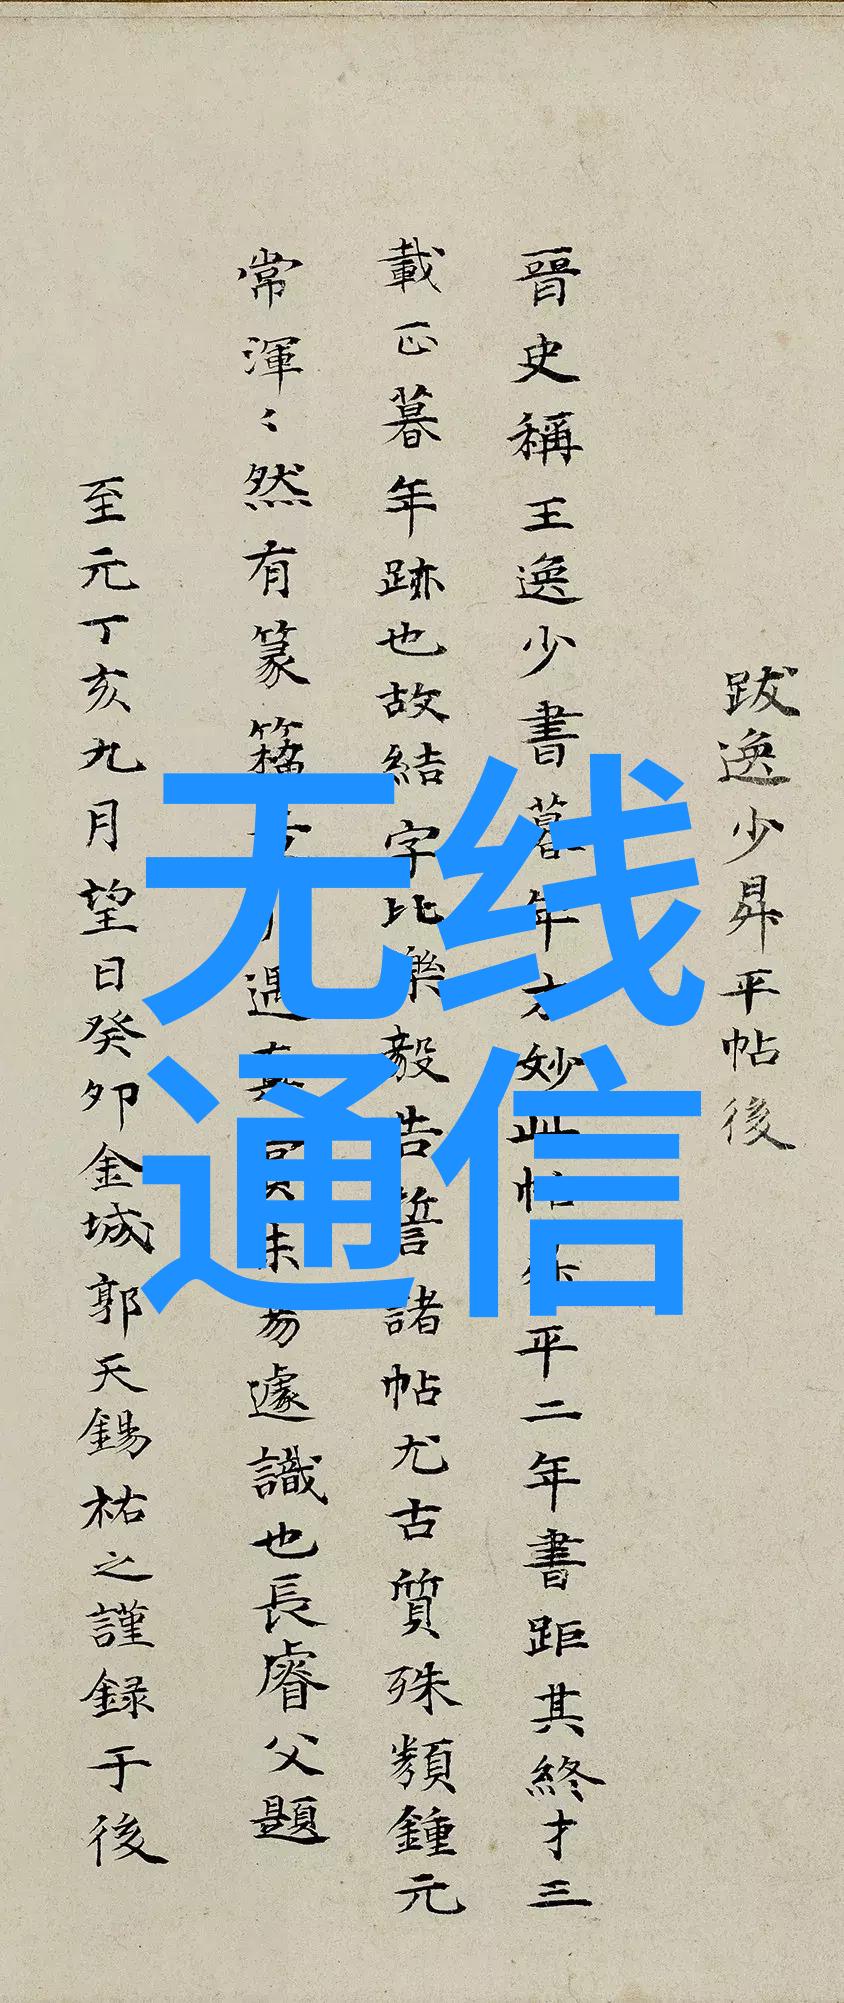 跋逸少昇平帖後
晉史稱王逸少書暮年方妙此帖昇平二年書距其終才三
載正暮年跡也故結字比樂毅告誓諸帖尤古質殊類鍾元
常渾〻然有篆籀遇真賞未易遽識也長睿父題
至元丁亥九月望日癸卯金城郭天錫祐之謹録于後
无线
通信